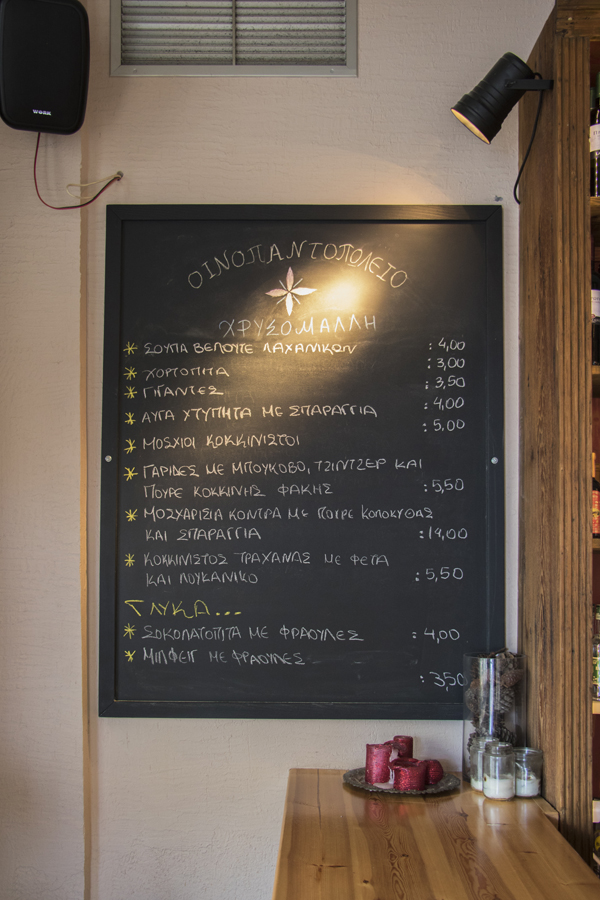 WORK
ΟΙΝΟΠΑΝΤΟΠΩΛΕΙΟ
ΧΡΥΣΟΜΑΛΛΗ
* ΣΟΥΠΑ ΒΕΛΟΥΤΕ ΛΑΧΑΝΙΚΩΝ : 4,00
* ΧΟΡΤΟΠΙΤΑ : 3,00
* ΓΙΓΑΝΤΕΣ : 3,50
* ΑΥΓΑ ΧΤΥΠΗΤΑ ΜΕ ΣΠΑΡΑΓΓΙΑ : 4,00
* ΜΟSΧΙΟΙ ΚΟΚΚΙΝΙΣΤΟΙ : 5,00
* ΓΑΡΙΔΕΣ ΜΕ ΜΠΟΥΚΟΒΟ, ΤΖΙΝΤΖΕΡ ΚΑΙ
ΠΟΥΡΕ ΚΟΚΚΙΝΗΣ ΦΑΚΗΣ : 5,50
* ΜΟΣΧΑΡΙΣΙΑ ΚΟΝΤΡΑ ΜΕ ΠΟΥΡΕ ΚΟΛΟΚΥΘΑΣ
ΚΑΙ ΣΠΑΡΑΓΓΙΑ : 14,00
* ΚΟΚΚΙΝΙΣΤΟΣ ΤΡΑΧΑΝΑΣ ΜΕ ΦΕΤΑ
ΚΑΙ ΛΟΥΚΑΝΙΚΟ : 5,50
ΓΛΥΚΑ...
* ΣΟΚΟΛΑΤΟΠΙΤΑ ΜΕ ΦΡΑΟΥΛΕΣ : 4,00
* ΜΙΛΦΕΙΓ ΜΕ ΦΡΑΟΥΛΕΣ : 3,50